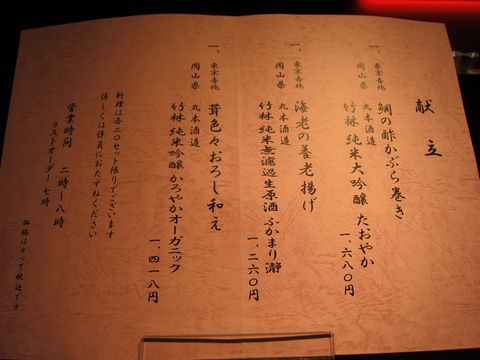 献立
一、東京吉兆
鯛の酢かぶら巻き
岡山県 丸本酒造
竹林 純米大吟醸 たおやか
一、六八〇円
一、東京吉兆
海老の養老揚げ
岡山県 丸本酒造
竹林 純米無濾過生原酒 ふかまり 瀞
一、二六〇円
一、東京吉兆
茸色々おろし和え
岡山県 丸本酒造
竹林 純米吟醸 かろやかオーガニック
一、四一八円
料理は各二〇セット限りでございます
詳しくは係員におたずねください
営業時間 二時〜八時
ラストオーダー七時
価格はすべて税込です